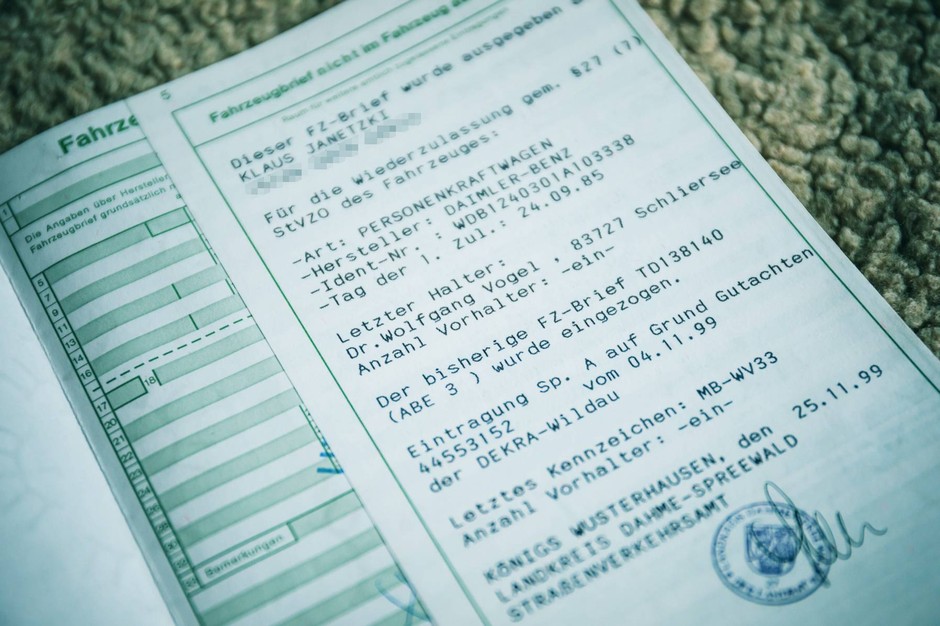 Fahrze
Die Angaben über Hersteller
Fahrzeugbrief grundsätzlich
1
5
7
9
11
13
14
16
17
18
19
20
21
22
23
24
26
28
30
33
Bemerkungen
5
Fahrzeugbrief nicht im Fahrzeug
Dieser FZ-Brief wurde ausgegeben
KLAUS JANETZKI
Für die Wiederzulassung gem. §27 (7)
StVZO des Fahrzeuges:
-Art: PERSONENKRAFTWAGEN
-Hersteller: DAIMLER-BENZ
-Ident-Nr.: WDB1240301A103338
-Tag der 1. Zul.: 24.09.85
Letzter Halter:
Dr.Wolfgang Vogel , 83727 Schliersee
Anzahl Vorhalter: -ein-
Der bisherige FZ-Brief TD138140
(ABE 3 ) wurde eingezogen.
Eintragung Sp. A auf Grund Gutachten
44553152 vom 04.11.99
der DEKRA-Wildau
Letztes Kennzeichen: MB-WV33
Anzahl Vorhalter: -ein-
KÖNIGS WUSTERHAUSEN, den 25.11.99
LANDKREIS DAHME-SPREEWALD
STRAßENVERKEHRSAMT